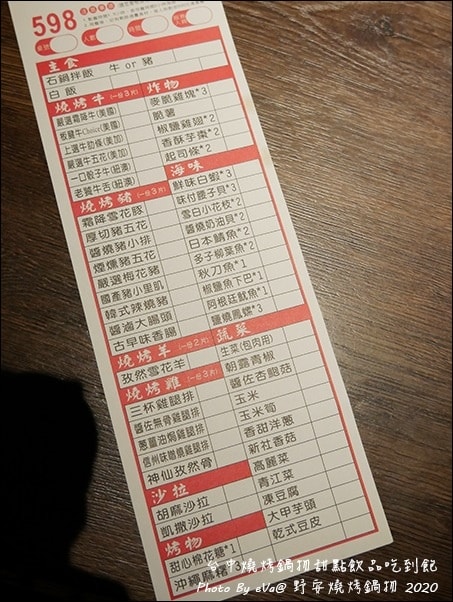 598
主食
石鍋拌飯 牛 or 豬
白飯
燒烤牛 (一份3片)
嚴選霜降牛(美國)
板腱牛Choice(美國)
上選牛肋條(美加)
嚴選牛五花(美加)
一口骰子牛(紐澳)
老饕牛舌(紐澳)
燒烤豬 (一份3片)
霜降雪花豚
厚切豬五花
醬燒豬小排
煙燻豬五花
嚴選梅花豬
國產豬小里肌
韓式辣燒豬
醬滷大腸頭
古早味香腸
燒烤羊 (一份2片)
孜然雪花羊
燒烤雞 (一份3片)
三杯雞腿排
醬佐無骨雞腿排
蔥鹽油焗雞腿排
信州味噌燒雞腿排
神仙孜然骨
沙拉
胡麻沙拉
凱撒沙拉
烤物
甜心棉花糖*1
沖繩麻糬
炸物
麥脆雞塊*3
脆薯
椒鹽雞翅*2
香酥芋棗*2
起司條*2
海味
鮮味白蝦*3
味付腰子貝*3
雪白小花枝*2
醬燒奶油貝*2
日本鯖魚*2
多子柳葉魚*2
秋刀魚*1
椒鹽魚下巴*1
阿根廷魷魚*1
鹽燒鳳螺*3
蔬菜
生菜(包肉用)
朝露青椒
醬佐杏鮑菇
玉米
玉米筍
香甜洋蔥
新社香菇
高麗菜
青江菜
凍豆腐
大甲芋頭
乾式豆皮
台中燒烤鍋物甜點飲品吃到飽
Photo By eVa@ 野宴燒烤鍋物 2020